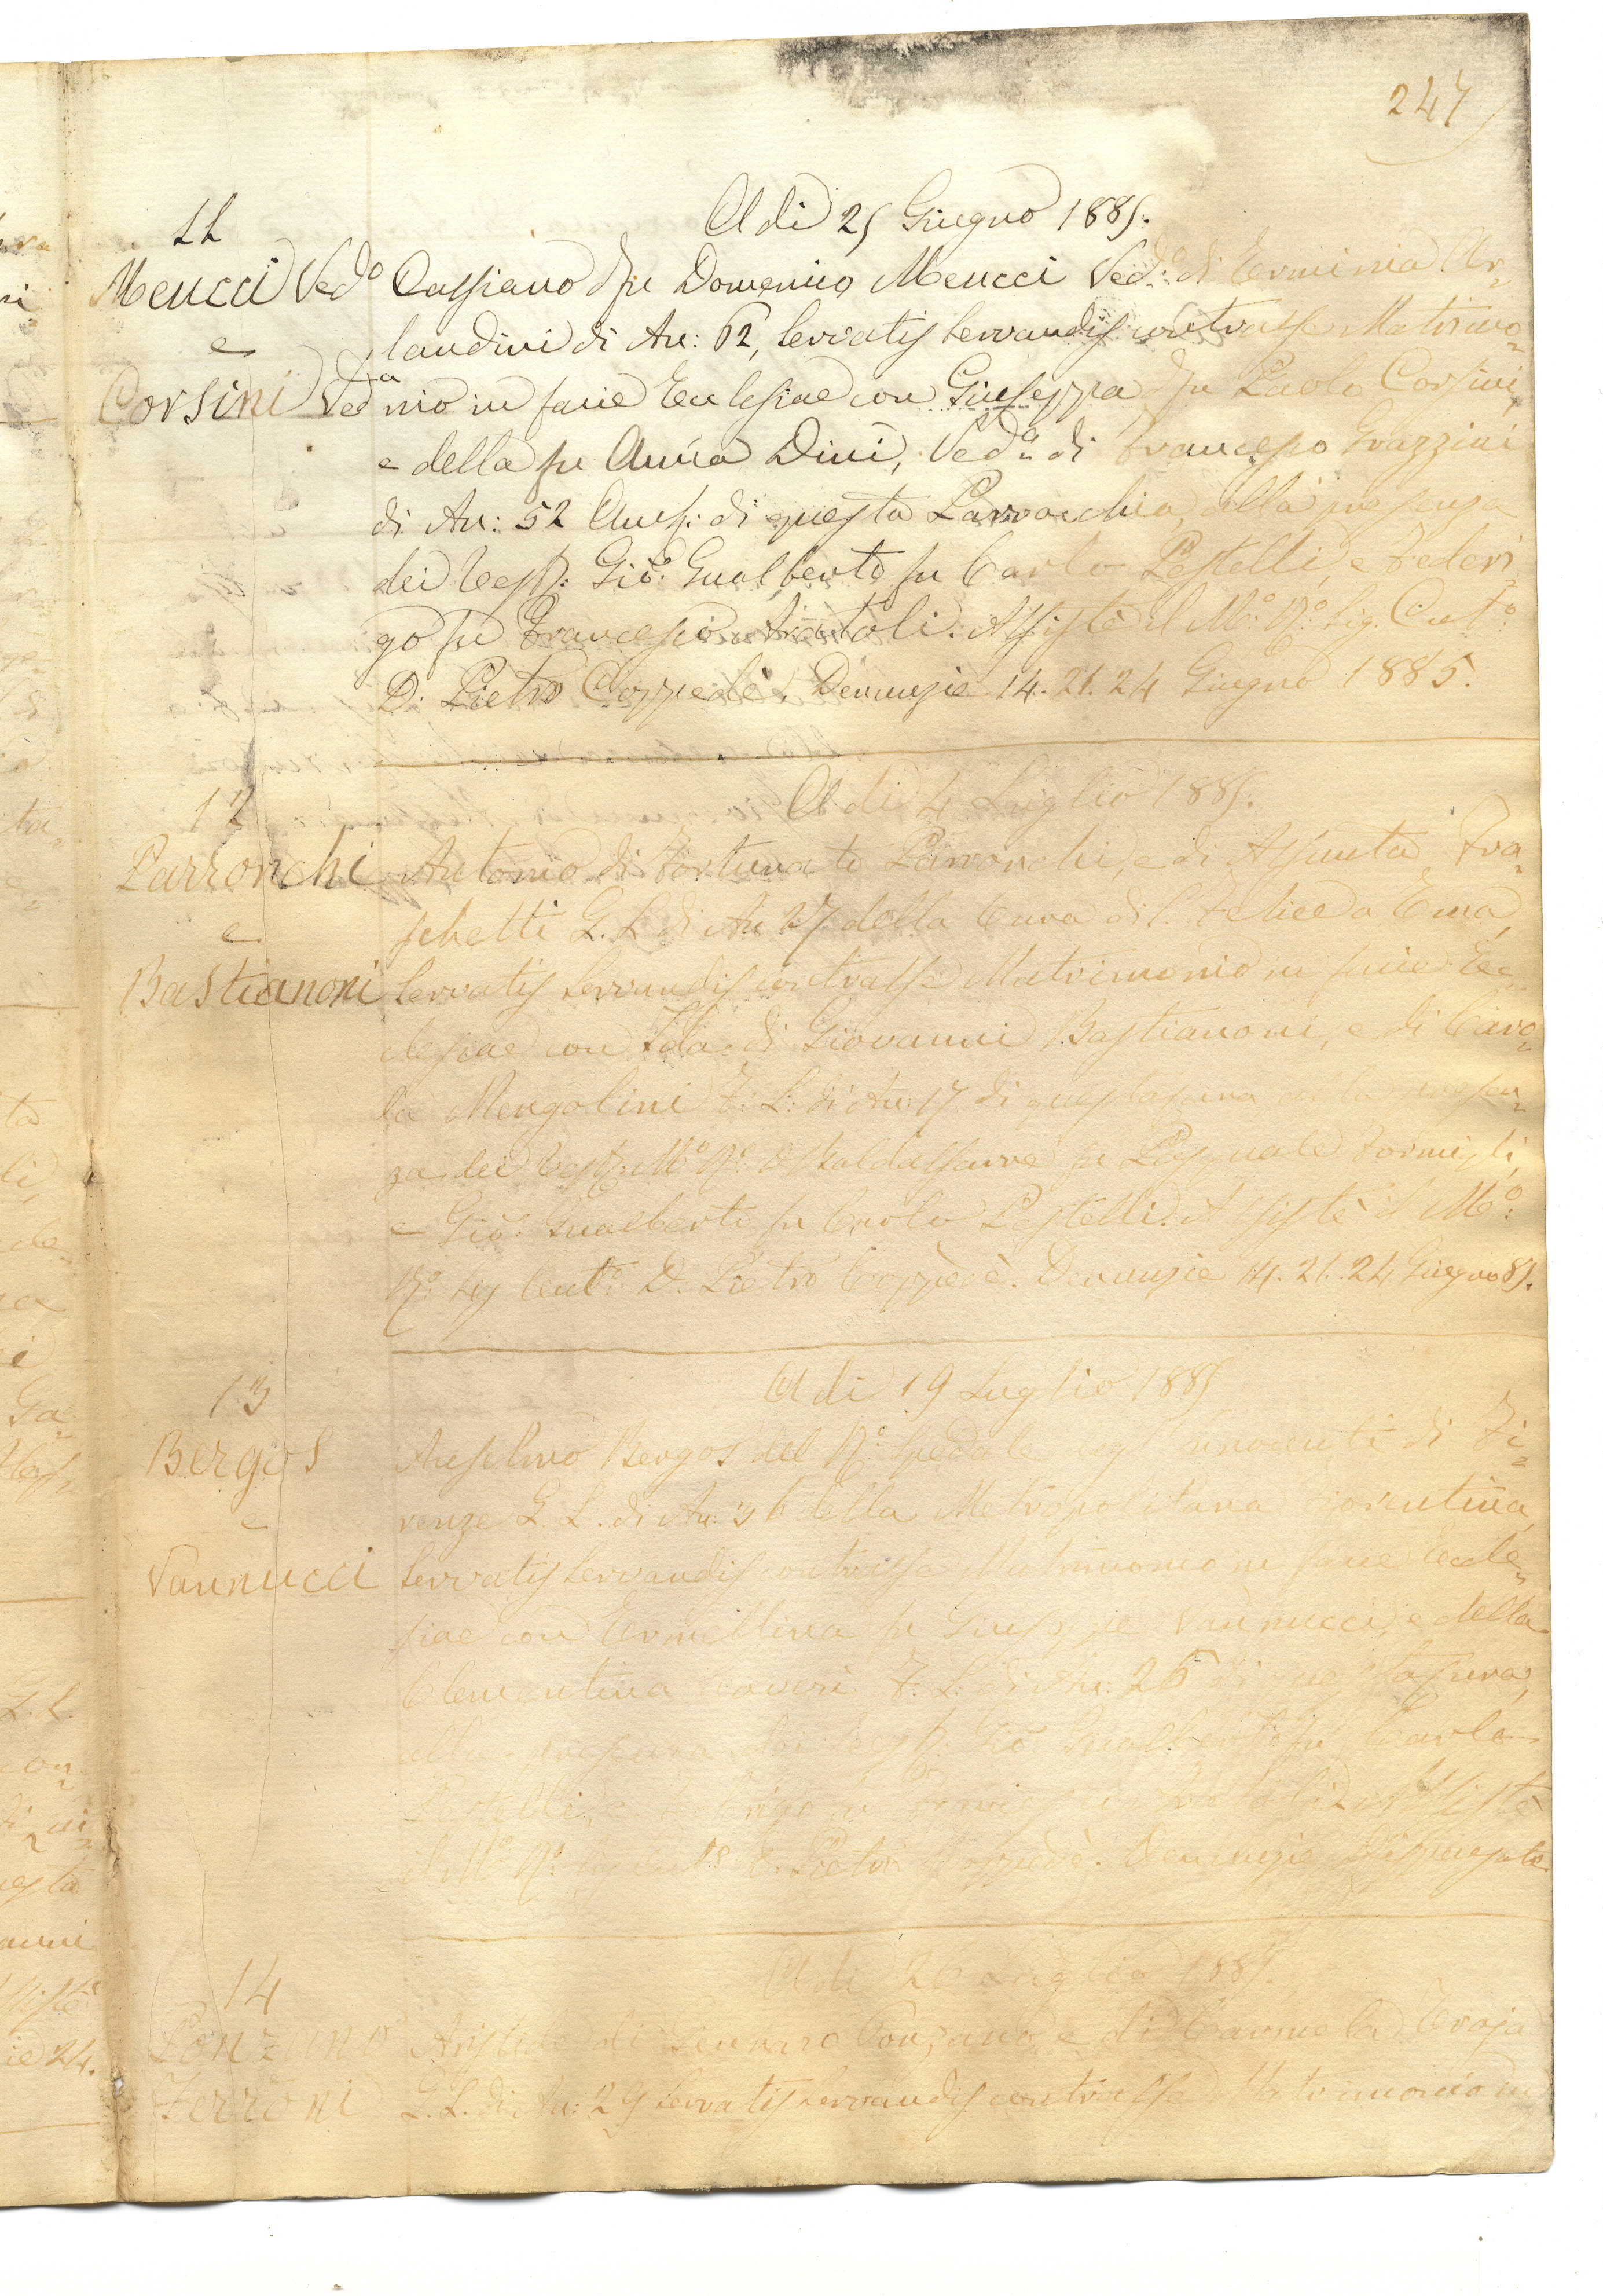 247
A dì 25 Giugno 1885.
11
Meucci Ved.o
e
Corsini Ved.a
Cassiano del fu Domenico Meucci Ved.o di Erminia Or=
landini di An: 62, servatis servandis contrasse Matrimo=
nio in facie Ecclesiae con Giuseppa del fu Paolo Corsini,
e della fu Anna Dini, Ved.a di Francesco Grazzini
di An: 52 Amb: di questa Parrocchia, alla presenza
dei Test: Gio: Gualberto fu Carlo Pestelli, e Federi=
go fu Francesco. Assistè il M.o R.o Sig. Cur.to
D. Pietro Coppedè. Denunzie 14. 21. 24 Giugno 1885.
A dì 4 Luglio 1885.
12
Parronchi
e
Bastianoni
Antonio di Fortunato Parronchi, e di Assunta Fra=
schetti G. L. di An: 27 della Cura di S. Felice a Ema,
servatis servandis contrasse Matrimonio in facie Ec=
clesiae con Ida di Giovanni Bastianoni, e di Caro=
la Mengolini F: L: di An: 17 di questa Cura alla presen=
za dei Test: M.o R.o Baldassarre fu Pasquale Formigli,
e Gio: Gualberto fu Carlo Pestelli. Assistè il M.o
R.o Sig Curt.o D. Pietro Coppedè. Denunzie 14. 21. 24 Giugno 85.
A dì 19 Luglio 1885
13
Bergos
e
Vannucci
Anselmo Bergos del R.o Spedale degl' Innocenti di Fi=
renze G. L. di An: 36 della Metropolitana Fiorentina,
servatis servandis contrasse Matrimonio in facie Eccle=
siae con Ermellina fu Giuseppe Vannucci, e della
Clementina F: L: di An: 26 di questa Cura,
alla presenza dei Test: Gio: Gualberto fu Carlo
Pestelli, e Federigo fu Francesco Assistè
il M.o R.o Sig Curt.o D. Pietro Coppedè. Denunzie Dispensate
A dì 26 Luglio 1885.
14
Ponzano
Ferroni
Aristide di Gennaro Ponzano, e di Carmela Troja
G. L. di An: 29 servatis servandis contrasse Matrimonio in